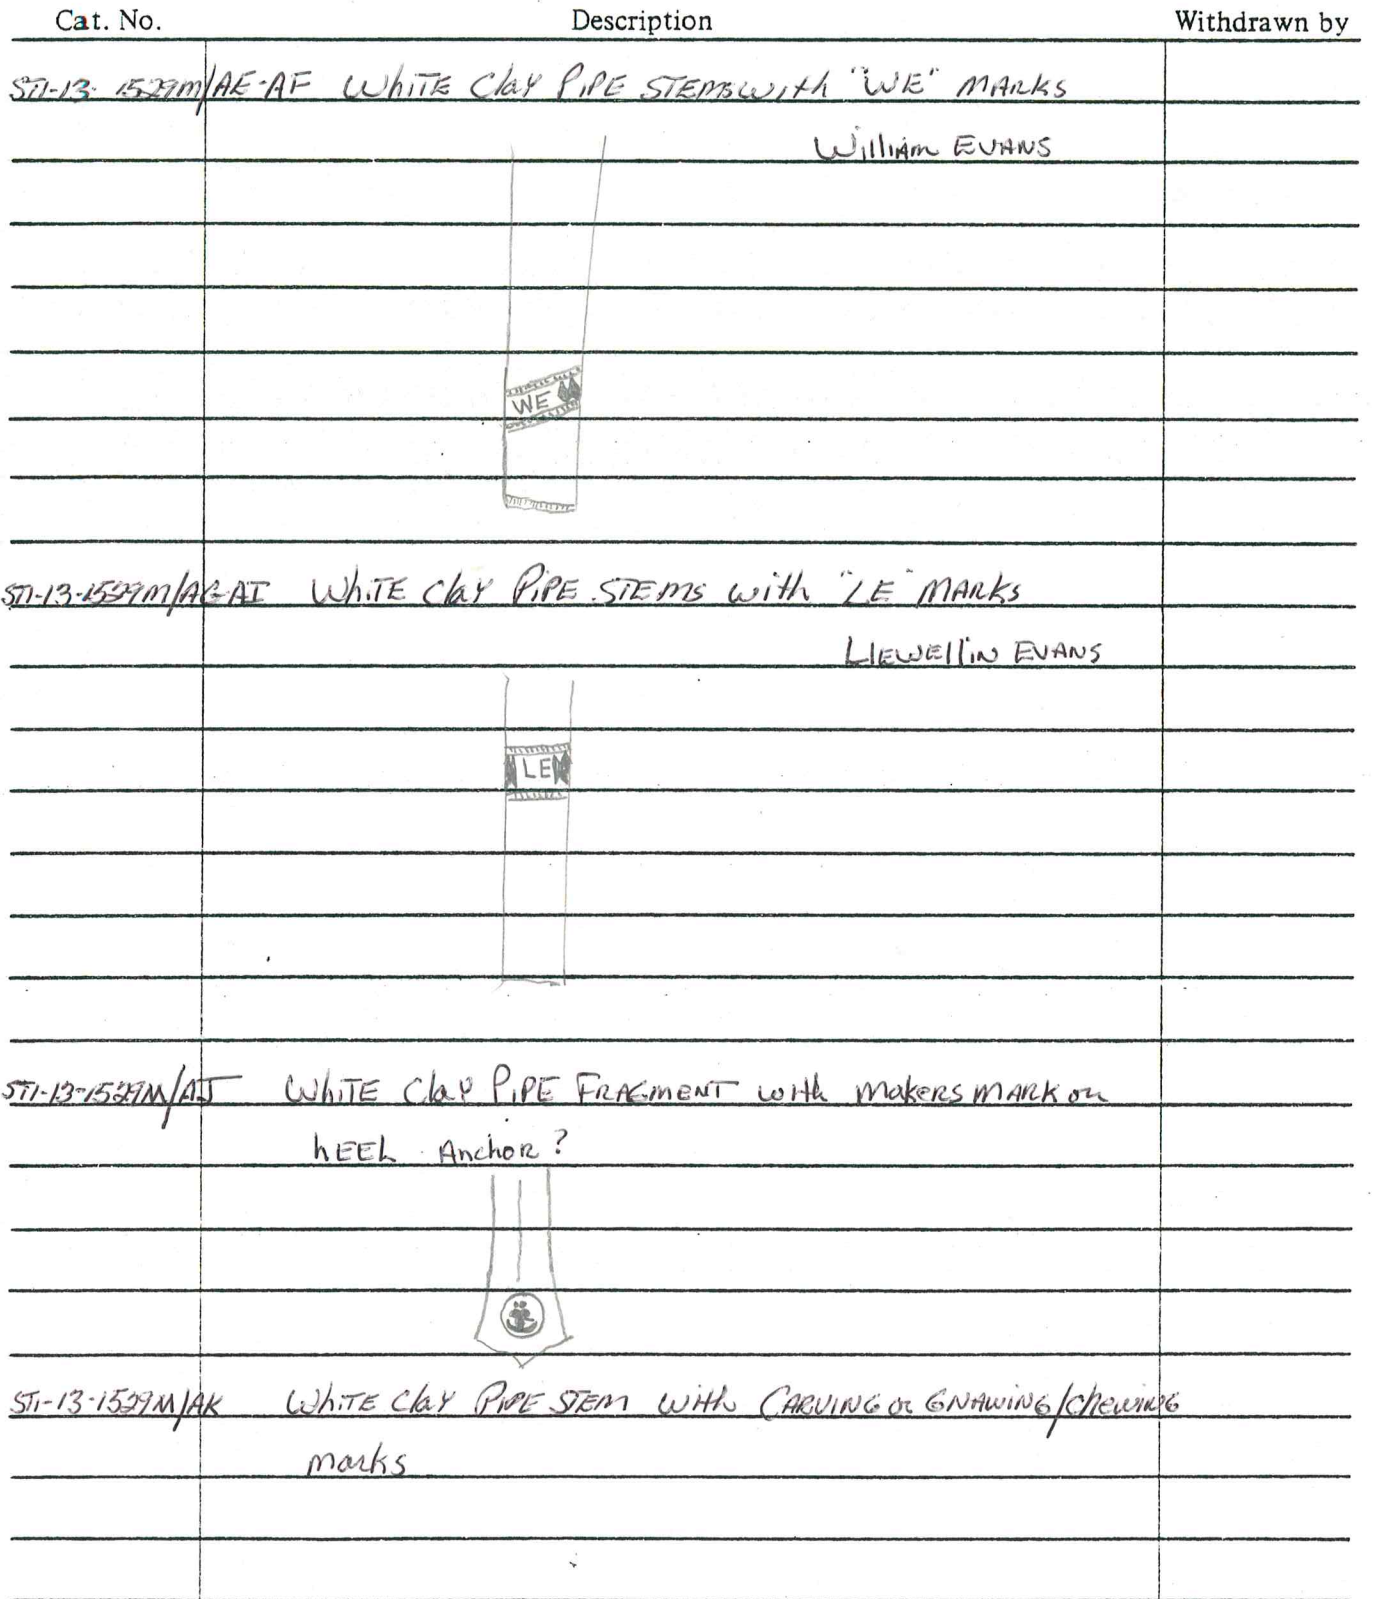 Cat. No. Description Withdrawn by
STI-13-1529M/AE-AF White Clay Pipe Stems with "WE" Marks
William Evans
WE
STI-13-1529M/AG-AI White Clay Pipe Stems with "LE" Marks
Llewellin Evans
LE
STI-13-1529M/AJ White Clay Pipe Fragment with makers mark on
heel Anchor?
STI-13-1529M/AK White Clay Pipe Stem with Carving or Gnawing/chewing
marks